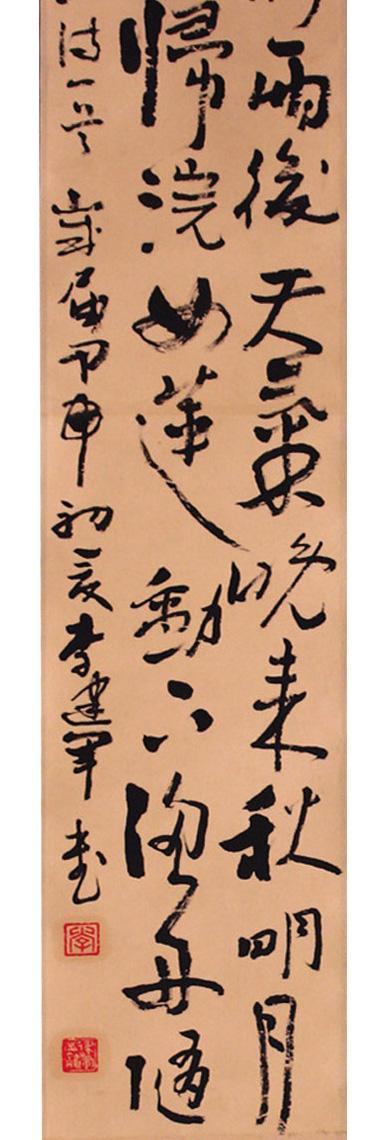 雨後天氣晚来秋明月
歸浣女蓮動下漁舟隨
诗一首 歲届甲申初夏李建軍书